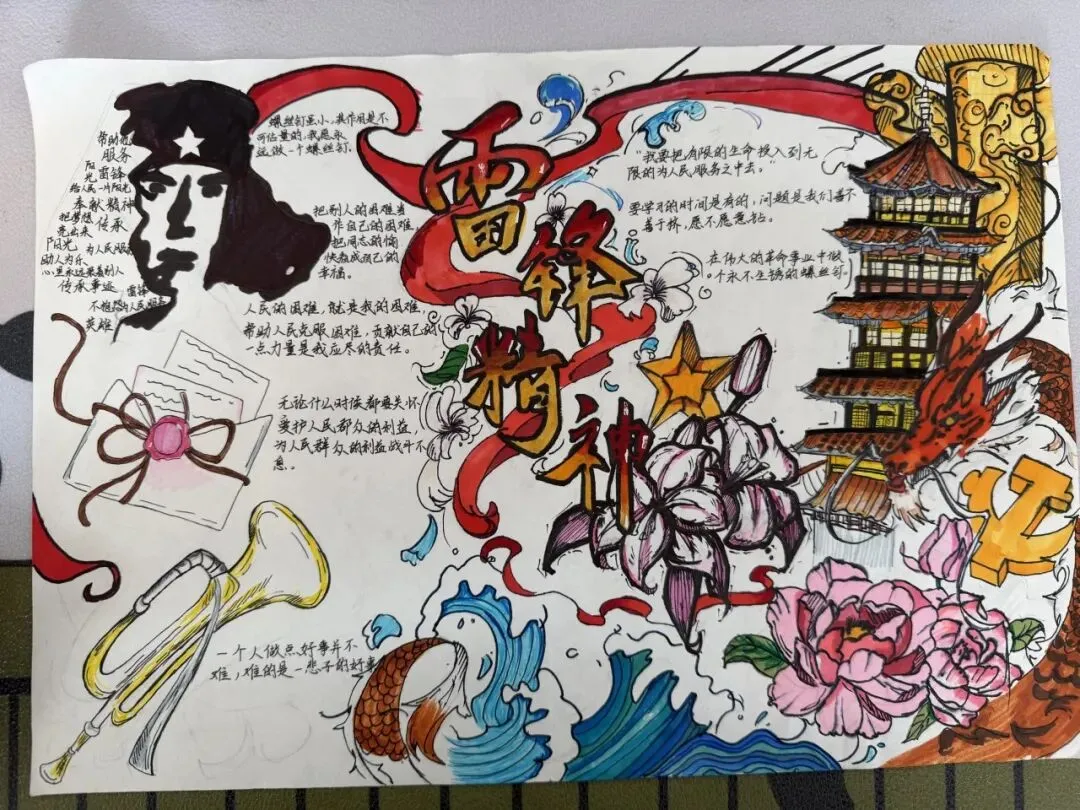 雷锋精神
帮助
服务
阳
光 雷锋
给人民一片阳光
奉献精神
把梦想 传承
亮出来
阳光 为人民服务
助人为乐
心里永远装着别人
传承事迹 雷锋
不愧为人民服务
英雄
螺丝钉虽小，其作用是不
可估量的，我愿永
远做一个螺丝钉。
把别人的困难当
作自己的困难，
把同志的愉
快看成自己的
幸福。
人民的困难，就是我的困难，
帮助人民克服困难，贡献自己的
一点力量是我应尽的责任。
无论什么时候都要关怀
爱护人民群众的利益，
为人民群众的利益战斗不
息。
一个人做点好事并不
难，难的是一悲子的好事
“我要把有限的生命投入到无
限的为人民服务之中去。”
要学习的时间是有的，问题是我们善不
善于挤，愿不愿意钻。
在伟大的革命事业中做
个永不生锈的螺丝钉。